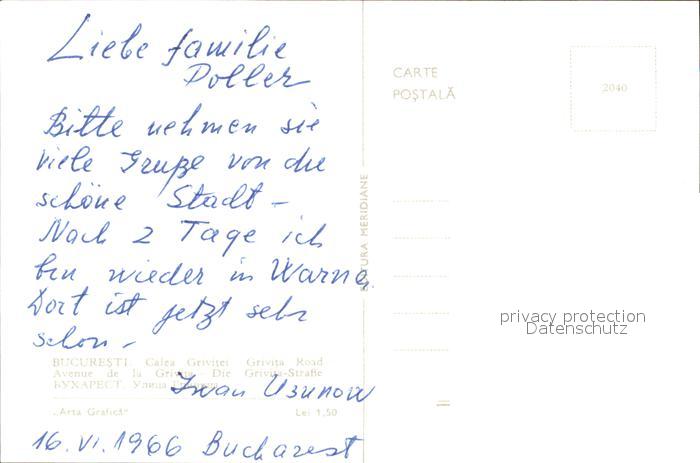 Liebe familie
Poller
Bitte nehmen sie
viele Gruße von die
schöne Stadt –
Nach 2 Tage ich
bin wieder in Warna.
Dort ist jetzt sehr
schon –
BUCUREȘTI: Calea Griviței Grivita Road
Avenue de la Grivita Die Grivita-Straße
БУХАРЕСТ. Улица
Iwan Usunow
„Arta Grafică" Lei 1,50
16.VI.1966 Bucharest
MERIDIANE
CARTE
POȘTALĂ
2040
privacy protection
Datenschutz